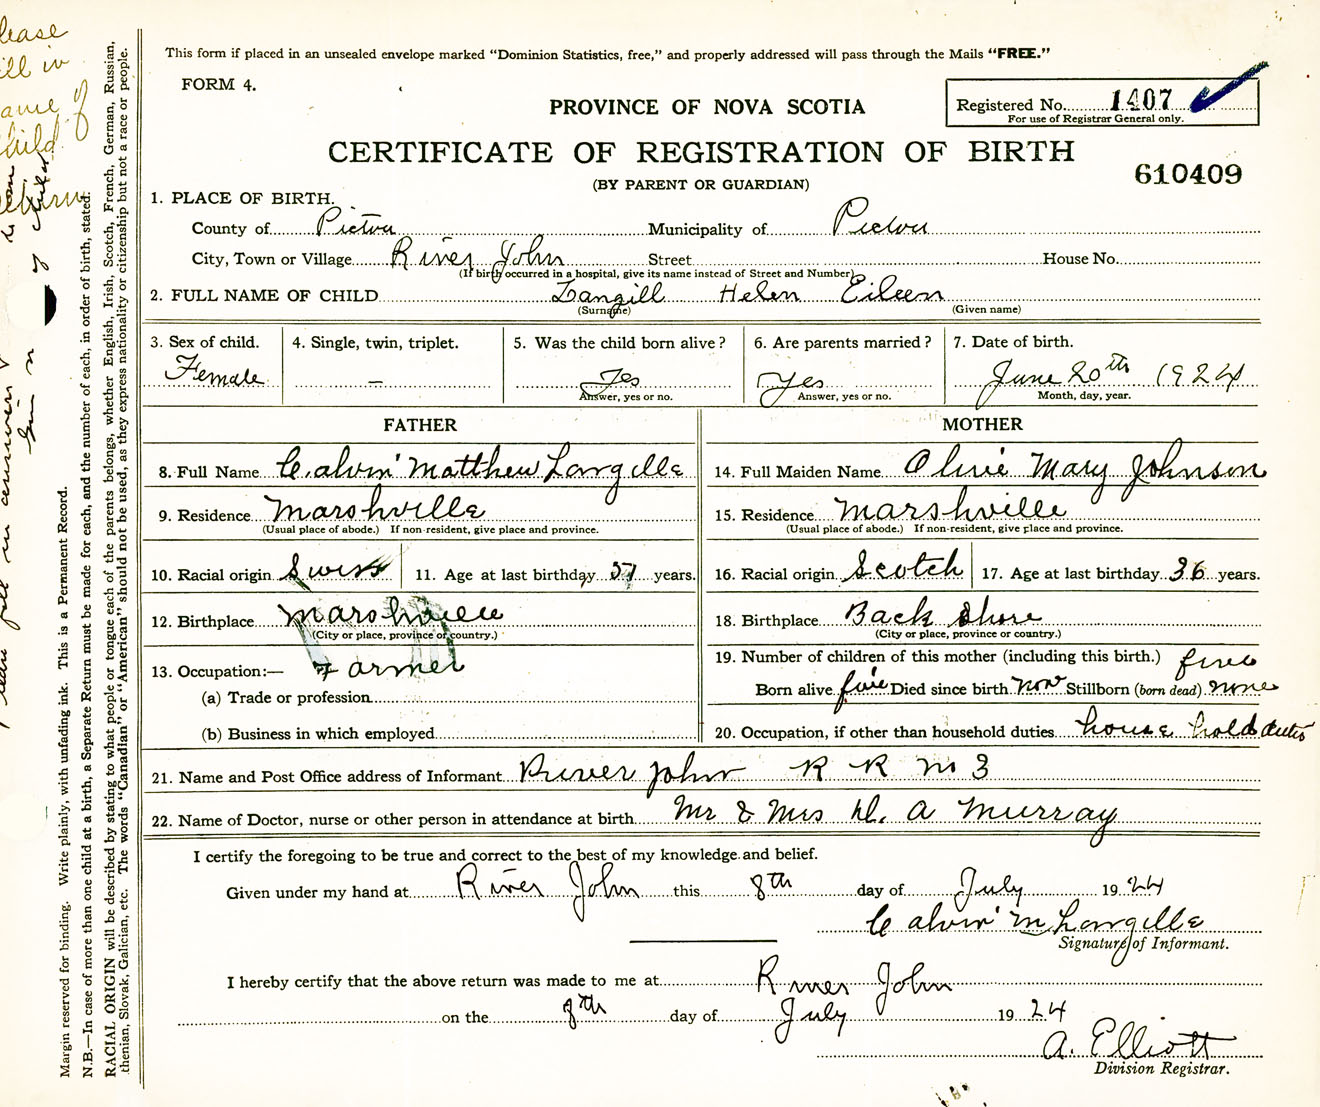 This form if placed in an unsealed envelope marked "Dominion Statistics, free," and properly addressed will pass through the Mails "FREE."
FORM 4.
PROVINCE OF NOVA SCOTIA
Registered No. 1407
For use of Registrar General only.
CERTIFICATE OF REGISTRATION OF BIRTH
610409
(BY PARENT OR GUARDIAN)
1. PLACE OF BIRTH.
County of Pictou Municipality of Pictou
City, Town or Village River John Street House No.
(If birth occurred in a hospital, give its name instead of Street and Number)
2. FULL NAME OF CHILD Langill Helen Eileen
(Surname) (Given name)
3. Sex of child. 4. Single, twin, triplet. 5. Was the child born alive? 6. Are parents married? 7. Date of birth.
Female — Yes Yes June 20th 1924
Answer, yes or no. Answer, yes or no. Month, day, year.
FATHER MOTHER
8. Full Name Calvin Matthew Langille 14. Full Maiden Name Olivie Mary Johnson
9. Residence Marshville 15. Residence Marshville
(Usual place of abode.) If non-resident, give place and province. (Usual place of abode.) If non-resident, give place and province.
10. Racial origin Swiss 11. Age at last birthday years. 16. Racial origin Scotch 17. Age at last birthday 36 years.
12. Birthplace Marshville 18. Birthplace Back Shore
(City or place, province or country.) (City or place, province or country.)
13. Occupation:— Farmer 19. Number of children of this mother (including this birth.) five
(a) Trade or profession Born alive five Died since birth non Stillborn (born dead) none
(b) Business in which employed 20. Occupation, if other than household duties house hold duties
21. Name and Post Office address of Informant River John R R No 3
22. Name of Doctor, nurse or other person in attendance at birth Mr & Mrs D. A Murray
I certify the foregoing to be true and correct to the best of my knowledge and belief.
Given under my hand at River John this 8th day of July 1924
Calvin M Langille
Signature of Informant.
I hereby certify that the above return was made to me at River John
on the 8th day of July 1924
A. Elliott
Division Registrar.
Margin reserved for binding. Write plainly, with unfading ink. This is a Permanent Record.
N.B.—In case of more than one child at a birth, a Separate Return must be made for each, and the number of each, in order of birth, stated.
RACIAL ORIGIN will be described by stating to what people or tongue each of the parents belongs, whether English, Irish, Scotch, French, German, Russian,
thenian, Slovak, Galician, etc. The words "Canadian" or "American" should not be used, as they express nationality or citizenship but not a race or people.
lease
ill in
ame of
hild